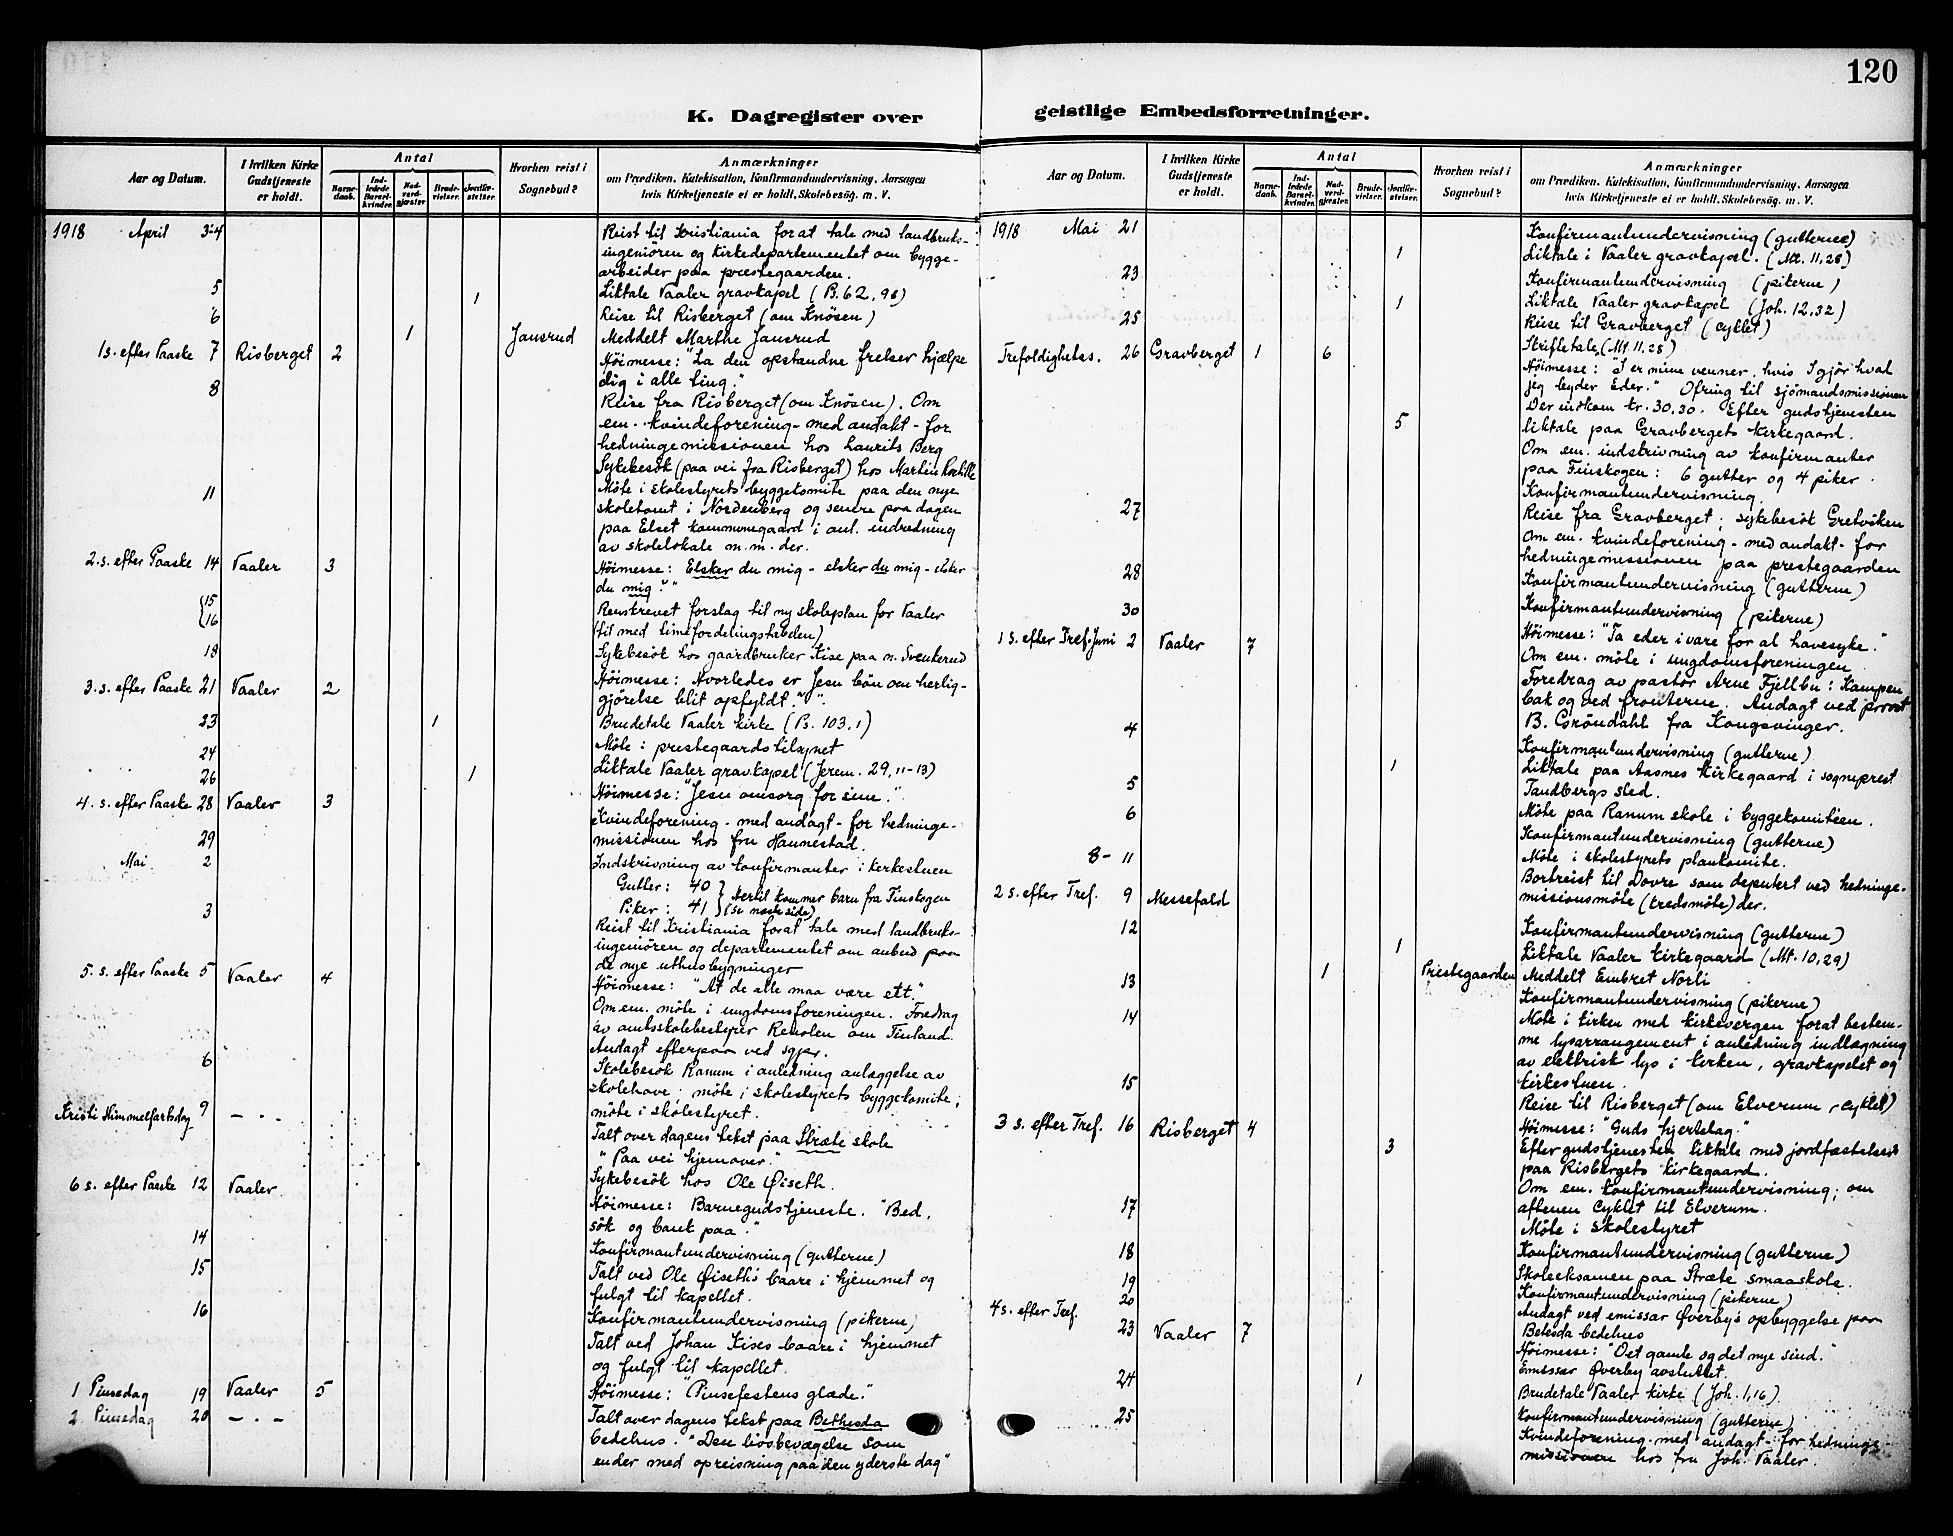 120
K. Dagregister over
Aar og Datum.
I hvilken Kirke Gudstjeneste er holdt.
Antal
Barne-daab.
Ind-ledede Barsel-kvinder.
Nad-verd-gjæster.
Brude-vielser.
Jordfæ-stelser.
Hvorhen reist i Sognebud?
Anmærkninger
om Prædiken, Katekisation, Konfirmandundervisning, Aarsagen
hvis Kirketjeneste ei er holdt, Skolebesøg. m. V.
1918 April 3-4 Reist til Kristiania forat tale med landbruks-
ingeniören og Kirkedepartementet om bygge-
arbeider paa præstegaarden.
5 1 Liktale Vaaler gravkapel (B. 62, 96)
6 Reise til Risberget (om Knösen)
1 Jansrud Meddelt Marthe Jansrud
1 s. efter Paaske 7 Risberget 2 Höimesse: "La den opstandne frelser hjælpe
dig i alle ting."
8 Reise fra Risberget (om Knösen). Om
em. kvindeforening - med andakt - for
hedningemissionen hos Laurits Berg
Sykebesök (paa vei fra Risberget) hos Martin
11 Möte i skolestyrets byggekomite paa den nye
skoletomt i Nordenberg og senere paa dagen
paa Elset kommunegaard i anl. indredning
av skolelokale m.m. der.
2. s. efter Paaske 14 Vaaler 3 Höimesse: Elsker du mig - elsker du mig - elsker
du mig?"
{15 Renskrevet forslag til ny skoleplan for Vaaler
{16 (til med timefordelingstabelen)
18 Sykebesök hos gaardbruker Kise paa n. Svenkerud
3. s. efter Paaske 21 Vaaler 2 Höimesse: Hvorledes er Jesu bön om herlig-
gjörelse blit opfyldt?"
23 1 Brudetale Vaaler kirke (Ps. 103, 1)
24 Möte i prestegaardstilsynet
26 1 Liktale Vaaler gravkapel (Jerem. 29, 11-13)
4. s. efter Paaske 28 Vaaler 3 Höimesse: "Jesu omsorg for sine."
29 Kvindeforening - med andagt - for hedninge-
missionen hos fru Hannestad.
Mai 2 Indskrivning av konfirmanter i kirkestuen
Gutter: 40 } hertil kommer barn fra Finskogen
Piker: 41 } (se næste side)
3 Reist til Kristiania forat tale med landbruks-
ingeniören og departementet om anbud paa
de nye uthusbygninger
5. s. efter Paaske 5 Vaaler 4 Höimesse: "At de alle maa være ett."
Om em. möte i ungdomsforeningen. Foredrag
av amtsskolebestyrer Remolen om Finland.
Andagt efterpaa ved sgpr.
6 Skolebesök Ranum i anledning anlæggelse av
skolehave; möte i skolestyrets byggekomite;
möte i skolestyret.
Kristi Himmelfartsdag 9 — . . Talt over dagens tekst paa Stræte skole
"Paa vei hjemover."
Sykebesök hos Ole Øiseth.
6 s. efter Paaske 12 Vaaler. Höimesse: Barnegudstjeneste. "Bed,
sök og bank paa."
14 Konfirmantundervisning (gutterne)
15 Talt ved Ole Øiseths baare i hjemmet og
fulgt til kapellet.
16 Konfirmantundervisning (pikerne)
Talt ved Johan Kises baare i hjemmet
og fulgt til kapellet.
1 Pinsedag 19 Vaaler 5 Höimesse: "Pinsefestens glæde."
2. Pinsedag 20 — . — Talt over dagens tekst paa Bethesda
bedehus. "Den livsbevægelse som
ender med opreisning paa den yderste dag"
geistlige Embedsforretninger.
Aar og Datum.
I hvilken Kirke Gudstjeneste er holdt.
Antal
Barne-daab.
Ind-ledede Barsel-kvinder.
Nad-verd-gjæster.
Brude-vielser.
Jordfæ-stelser.
Hvorhen reist i Sognebud?
Anmærkninger
om Prædiken, Katekisation, Konfirmandundervisning, Aarsagen
hvis Kirketjeneste ei er holdt, Skolebesøg. m. V.
1918 Mai 21 Konfirmantundervisning (gutterne)
1 Liktale i Vaaler gravkapel. (Mt. 11, 28)
23 Konfirmantundervisning (pikerne)
1 Liktale Vaaler gravkapel (Joh. 12, 32)
25 Reise til Gravberget (cyklet)
Trefoldighetss. 26 Gravberget 1 6 Skriftetale (Mt 11, 28)
Höimesse: "I er mine venner, hvis I gjör hvad
jeg byder Eder." Ofring til sjömandsmissionen
Der indkom kr. 30,30. Efter gudstjenesten
5 liktale paa Gravbergets kirkegaard.
Om em. indskrivning av konfirmanter
paa Finskogen: 6 gutter og 4 piker.
Konfirmantundervisning.
27 Reise fra Gravberget; sykebesök Gretviken
Om em. kvindeforening - med andakt - for
hedningemissionen paa prestegaarden
28 Konfirmantundervisning (gutterne)
30 Konfirmantundervisning (pikerne)
1 s. efter Tref. Juni 2 Vaaler 7 Höimesse: "Ta eder i vare for al havesyke."
Om em. möte i ungdomsforeningen
Foredrag av pastor Arne Fjellbu: Kampen
bak og ved fronterne. Andagt ved provst
B. Gröndahl fra Kongsvinger.
4 Konfirmantundervisning (gutterne)
1 Liktale paa Aasnes kirkegaard i sogneprest
Tandbergs sted.
5 Möte paa Ranum skole i byggekomiteen.
6 Konfirmantundervisning (gutterne)
Möte i skolestyrets plankomite.
8 - 11 Bortreist til Dovre som deputert ved hedninge-
missionsmöte (kredsmöte) der.
2 s. efter Tref. 9 Messefald
12 Konfirmantundervisning (gutterne)
1 Liktale Vaaler kirkegaard (Mt. 10, 29)
1 Prestegaarden Meddelt Embret Norli
13 Konfirmantundervisning (pikerne)
14 Möte i kirken med kirkevergen forat bestem-
me lysarrangement i anledning indlægning
av elektrisk lys i kirken, gravkapelet og
kirkestuen.
15 Reise til Risberget (om Elverum - cyklet)
3 s. efter Tref. 16 Risberget 4 Höimesse: "Guds hjertelag."
3 Efter gudstjenesten liktale med jordfæstelser
paa Risbergets kirkegaard.
Om em. konfirmantundervisning; om
aftenen cyklet til Elverum.
17 Möte i skolestyret
18 Konfirmantundervisning (gutterne)
19 Skoleeksamen paa Stræte smaaskole.
20 Konfirmantundervisning (pikerne)
Andagt ved emissær Øverby's opbyggelse paa
Betesda bedehus
4 s. efter Tref. 23 Vaaler 7 Höimesse: "Det gamle og det nye sind."
Emissær Øverby avsluttet.
24 1 Brudetale Vaaler kirke (Joh. 1, 16)
25 Konfirmantundervisning (gutterne)
Kvindeforening - med andagt - for hedninge
missionen hos fru Joh. Vaaler.